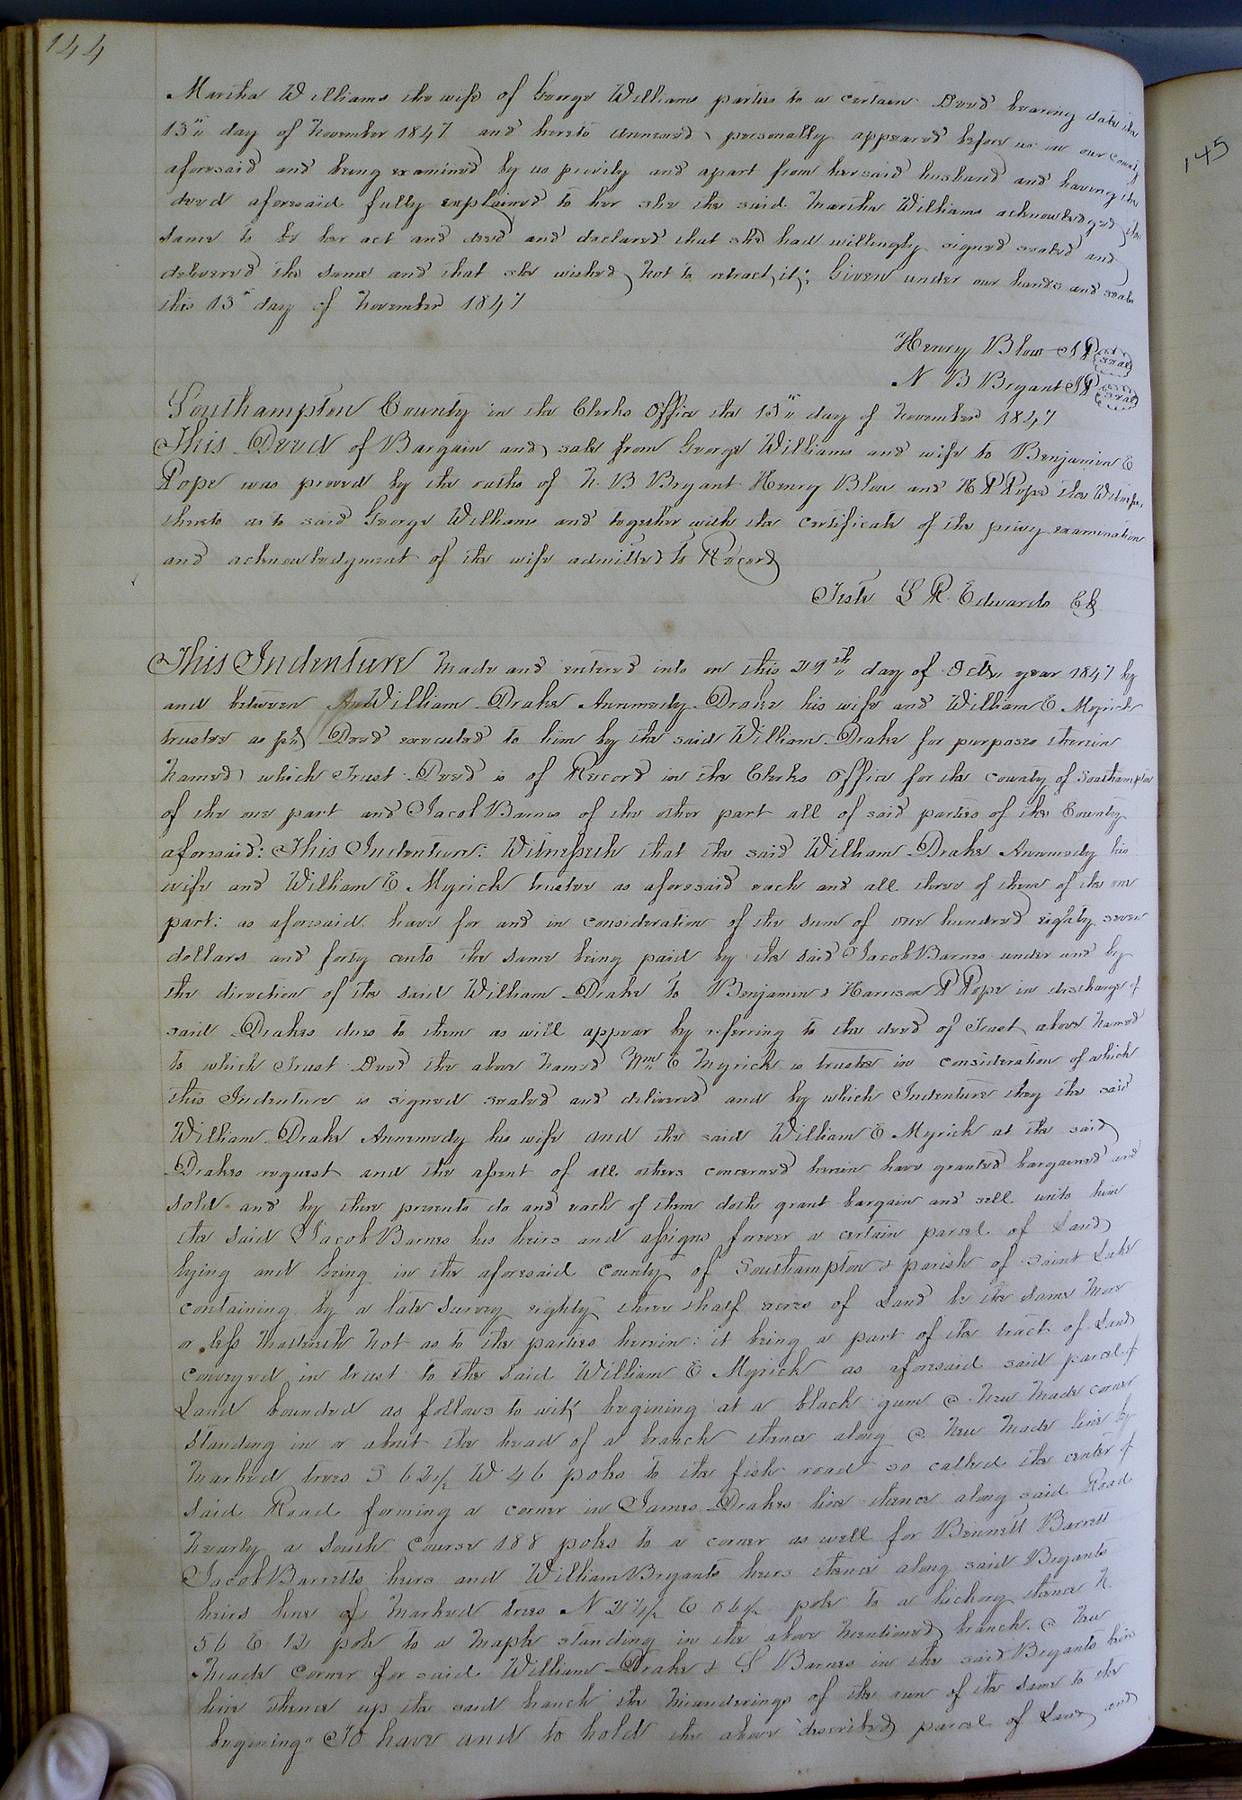 144
Martha Williams the wife of George Williams parties to a certain Deed bearing date the
13th day of November 1847 and hereto annexed personally appeared before us in our county
aforesaid and being examined by us privily and apart from her said husband and having the
deed aforesaid fully explained to her she the said Martha Williams acknowledged the
same to be her act and deed and declared that she had willingly signed sealed and
delivered the same and that she wished not to retract it; Given under our hands and seals
this 13th day of November 1847
Henry Blow JP seal
N B Bryant JP seal
Southampton County in the Clerks Office the 15th day of November 1847
This Deed of Bargain and sale from George Williams and wife to Benjamin E
Pope was proved by the oaths of N. B Bryant Henry Blow and H P Pope the Witnesses
thereto as to said George Williams and together with the certificate of the privy examination
and acknowledgment of the wife admitted to Record
Teste L R Edwards Clk
This Indenture made and entered into on this 29th day of Octr year 1847 by
and between William Drake Annmedy Drake his wife and William E Myrick
trustee as pr Deed executed to him by the said William Drake for purposes therein
named which Trust Deed is of Record in the Clerks Office for the county of Southampton
of the one part and Jacob Barnes of the other part all of said parties of the County
aforesaid: This Indenture: Witnesseth that the said William Drake Annmedy his
wife and William E Myrick trustee as aforesaid each and all three of them of the one
part: as aforesaid have for and in consideration of the sum of one hundred eighty seven
dollars and forty cents the same being paid by the said Jacob Barnes under and by
the direction of the said William Drake to Benjamin & Harrison P Pope in discharge of
said Drakes dues to them as will appear by referring to the deed of Trust above named
to which Trust Deed the above named Wm E Myrick is trustee in consideration of which
this Indenture is signed sealed and delivered and by which Indenture they the said
William Drake Annmedy his wife and the said William E Myrick at the said
Drakes request and the assent of all others concerned herein have granted bargained and
sold and by these presents do and each of them doth grant bargain and sell unto him
the said Jacob Barnes his heirs and assigns forever a certain parcel of Land
lying and being in the aforesaid county of Southampton & parish of Saint Luke
containing by a late survey eighty three & half acres of Land be the same more
or less mattereth not as to the parties herein: it being a part of the tract of Land
conveyed in trust to the said William E Myrick as aforesaid said parcel of
Land bounded as follows to wit, begining at a black gum a new made corner
standing in or about the head of a branch thence along a new made line by
marked trees S 62½ W 46 poles to the fish road so called the center of
said Road forming a corner in James Drakes line thence along said Road
nearly a south course 188 poles to a corner as well for Bennett Barrett
Jacob Barretts heirs and William Bryants heirs thence along said Bryants
heirs line of marked trees N 21½ E 86½ pole to a hickory thence N.
56 E 12 pole to a maple standing in the above mentioned branch a new
made corner for said William Drake & J Barnes in the said Bryants heirs
line thence up the said branch the meanderings of the run of the same to the
begining" To have and to hold the above described parcel of Land and
145